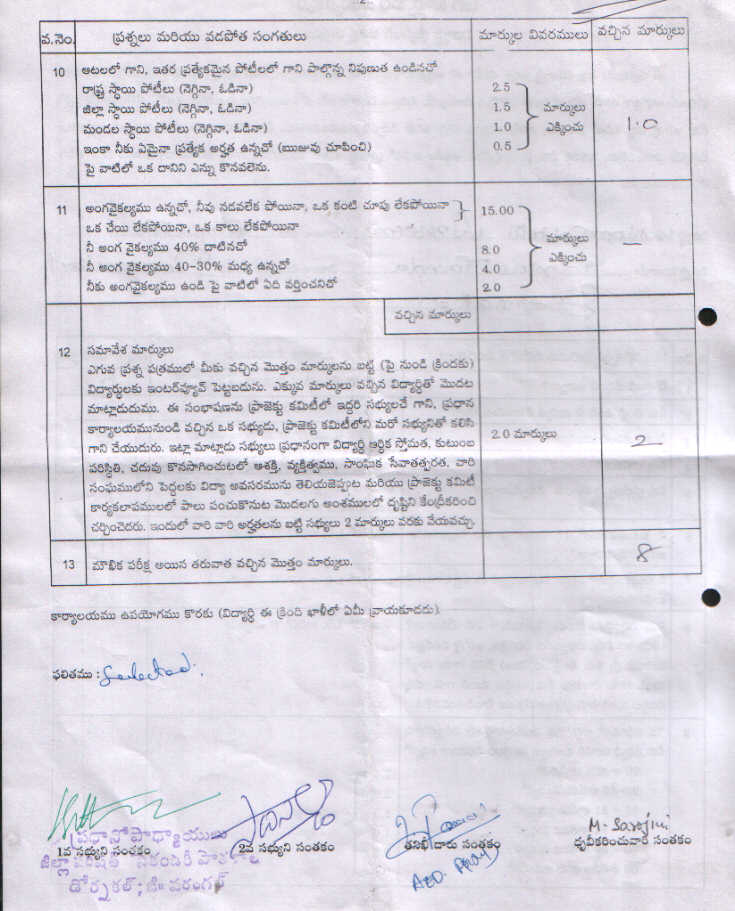 2
వ.నెం. ప్రశ్నలు మరియు వడపోత సంగతులు మార్కుల వివరములు వచ్చిన మార్కులు
10 ఆటలలో గాని, ఇతర ప్రత్యేకమైన పోటీలలో గాని పాల్గొన్న నిపుణుత ఉండినచో
రాష్ట్ర స్థాయి పోటీలు (నెగ్గినా, ఓడినా) 2.5
జిల్లా స్థాయి పోటీలు (నెగ్గినా, ఓడినా) 1.5 మార్కులు
మండల స్థాయి పోటీలు (నెగ్గినా, ఓడినా) 1.0 ఎక్కించు 1.0
ఇంకా నీకు ఏమైనా ప్రత్యేక అర్హత ఉన్నచో (ఋజువు చూపించి) 0.5
పై వాటిలో ఒక దానిని ఎన్ను కొనవలెను.
11 అంగవైకల్యము ఉన్నచో, నీవు నడవలేక పోయినా, ఒక కంటి చూపు లేకపోయినా 15.00
ఒక చేయి లేకపోయినా, ఒక కాలు లేకపోయినా
నీ అంగ వైకల్యము 40% దాటినచో 8.0 మార్కులు –
నీ అంగ వైకల్యము 40-30% మధ్య ఉన్నచో 4.0 ఎక్కించు
నీకు అంగవైకల్యము ఉండి పై వాటిలో ఏది వర్తించనిచో 2.0
వచ్చిన మార్కులు
12 సమావేశ మార్కులు
ఎగువ ప్రశ్న పత్రములో మీకు వచ్చిన మొత్తం మార్కులను బట్టి (పై నుండి క్రిందకు)
విద్యార్థులకు ఇంటర్వ్యూవ్ పెట్టబడును. ఎక్కువ మార్కులు వచ్చిన విద్యార్థితో మొదట
మాట్లాడుదుము. ఈ సంభాషణను ప్రాజెక్టు కమిటీలో ఇద్దరి సభ్యులచే గాని, ప్రధాన
కార్యాలయమునుండి వచ్చిన ఒక సభ్యుడు, ప్రాజెక్టు కమిటీలోని మరో సభ్యునితో కలిసి
గాని చేయుదురు. ఇట్లా మాట్లాడు సభ్యులు ప్రధానంగా విద్యార్థి ఆర్థిక స్తోమత, కుటుంబ 2.0 మార్కులు 2
పరిస్థితి, చదువు కొనసాగించుటలో ఆశక్తి, వ్యక్తిత్వము, సాంఘిక సేవాతత్పరత, వారి
సంఘములోని పెద్దలకు విద్యా అవసరమును తెలియజెప్పుట మరియు ప్రాజెక్టు కమిటీ
కార్యకలాపములలో పాలు పంచుకొనుట మొదలగు అంశములలో దృష్టిని కేంద్రీకరించి
చర్చించెదరు. ఇందులో వారి వారి అర్హతలను బట్టి సభ్యులు 2 మార్కులు వరకు వేయవచ్చు.
13 మౌఖిక పరీక్ష అయిన తరువాత వచ్చిన మొత్తం మార్కులు. 8
కార్యాలయము ఉపయోగము కొరకు (విద్యార్థి ఈ క్రింది ఖాళీలో ఏమీ వ్రాయకూడదు)
ఫలితము : Selected.
M. Sarojini
1వ సభ్యుని సంతకం 2వ సభ్యుని సంతకం తనిఖీ దారు సంతకం ధృవీకరించువారి సంతకం
ప్రధానోపాధ్యాయులు
జిల్లా పరిషత్ సెకండరీ పాఠశాల
డోర్నకల్; జి॥ వరంగల్